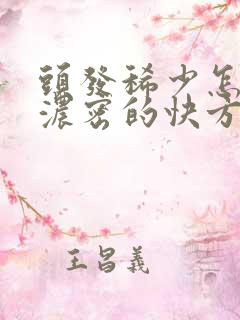 頭發稀少怎
濃密的快方
王昌義